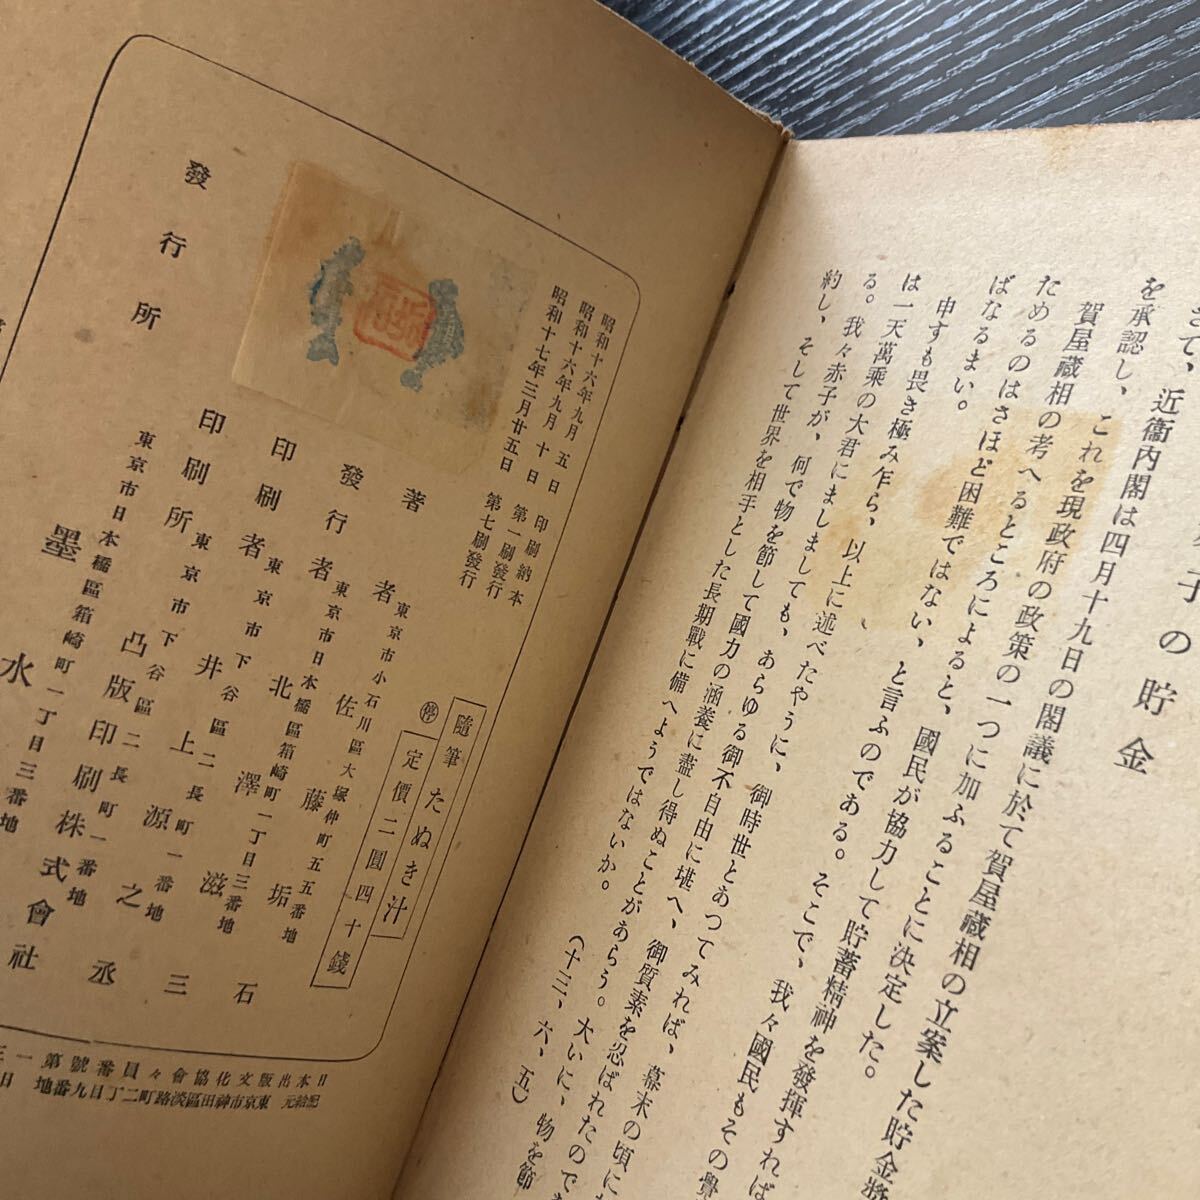 子の貯金
さて、近衞内閣は四月十九日の閣議に於て賀屋藏相の立案した貯金奬
を承認し、これを現政府の政策の一つに加ふることに決定した。
賀屋藏相の考へるところによると、國民が協力して貯蓄精神を發揮すれば
ためるのはさほど困難ではない、と言ふのである。そこで、我々國民もその骨
ばなるまい。
申すも畏き極み乍ら、以上に述べたやうに、御時世とあつてみれば、幕末の頃に
は一天萬乘の大君にましましても、あらゆる御不自由に堪へ、御質素を忍ばれたので
る。我々赤子が、何で物を節して國力の涵養に盡し得ぬことがあらう。大いに、物を節
約し、そして世界を相手とした長期戰に備へようではないか。
（十三、六、五）
隨筆 たぬき汁
㊡ 定價二圓四十錢
昭和十六年九月 五日 印刷納本
昭和十六年九月 十日 第一刷發行
昭和十七年三月廿五日 第七刷發行
東京市小石川區大塚仲町五五番地
著者 佐藤垢石
東京市日本橋區箱崎町一丁目三番地
發行者 北澤滋三
東京市下谷區二長町一番地
印刷者 井上源之丞
東京市下谷區二長町一番地
印刷所 凸版印刷株式會社
東京市日本橋區箱崎町一丁目三番地
發行所 墨水
日本出版文化協會々員番號第一三
配給元 東京市神田區淡路町二丁目九番地 日